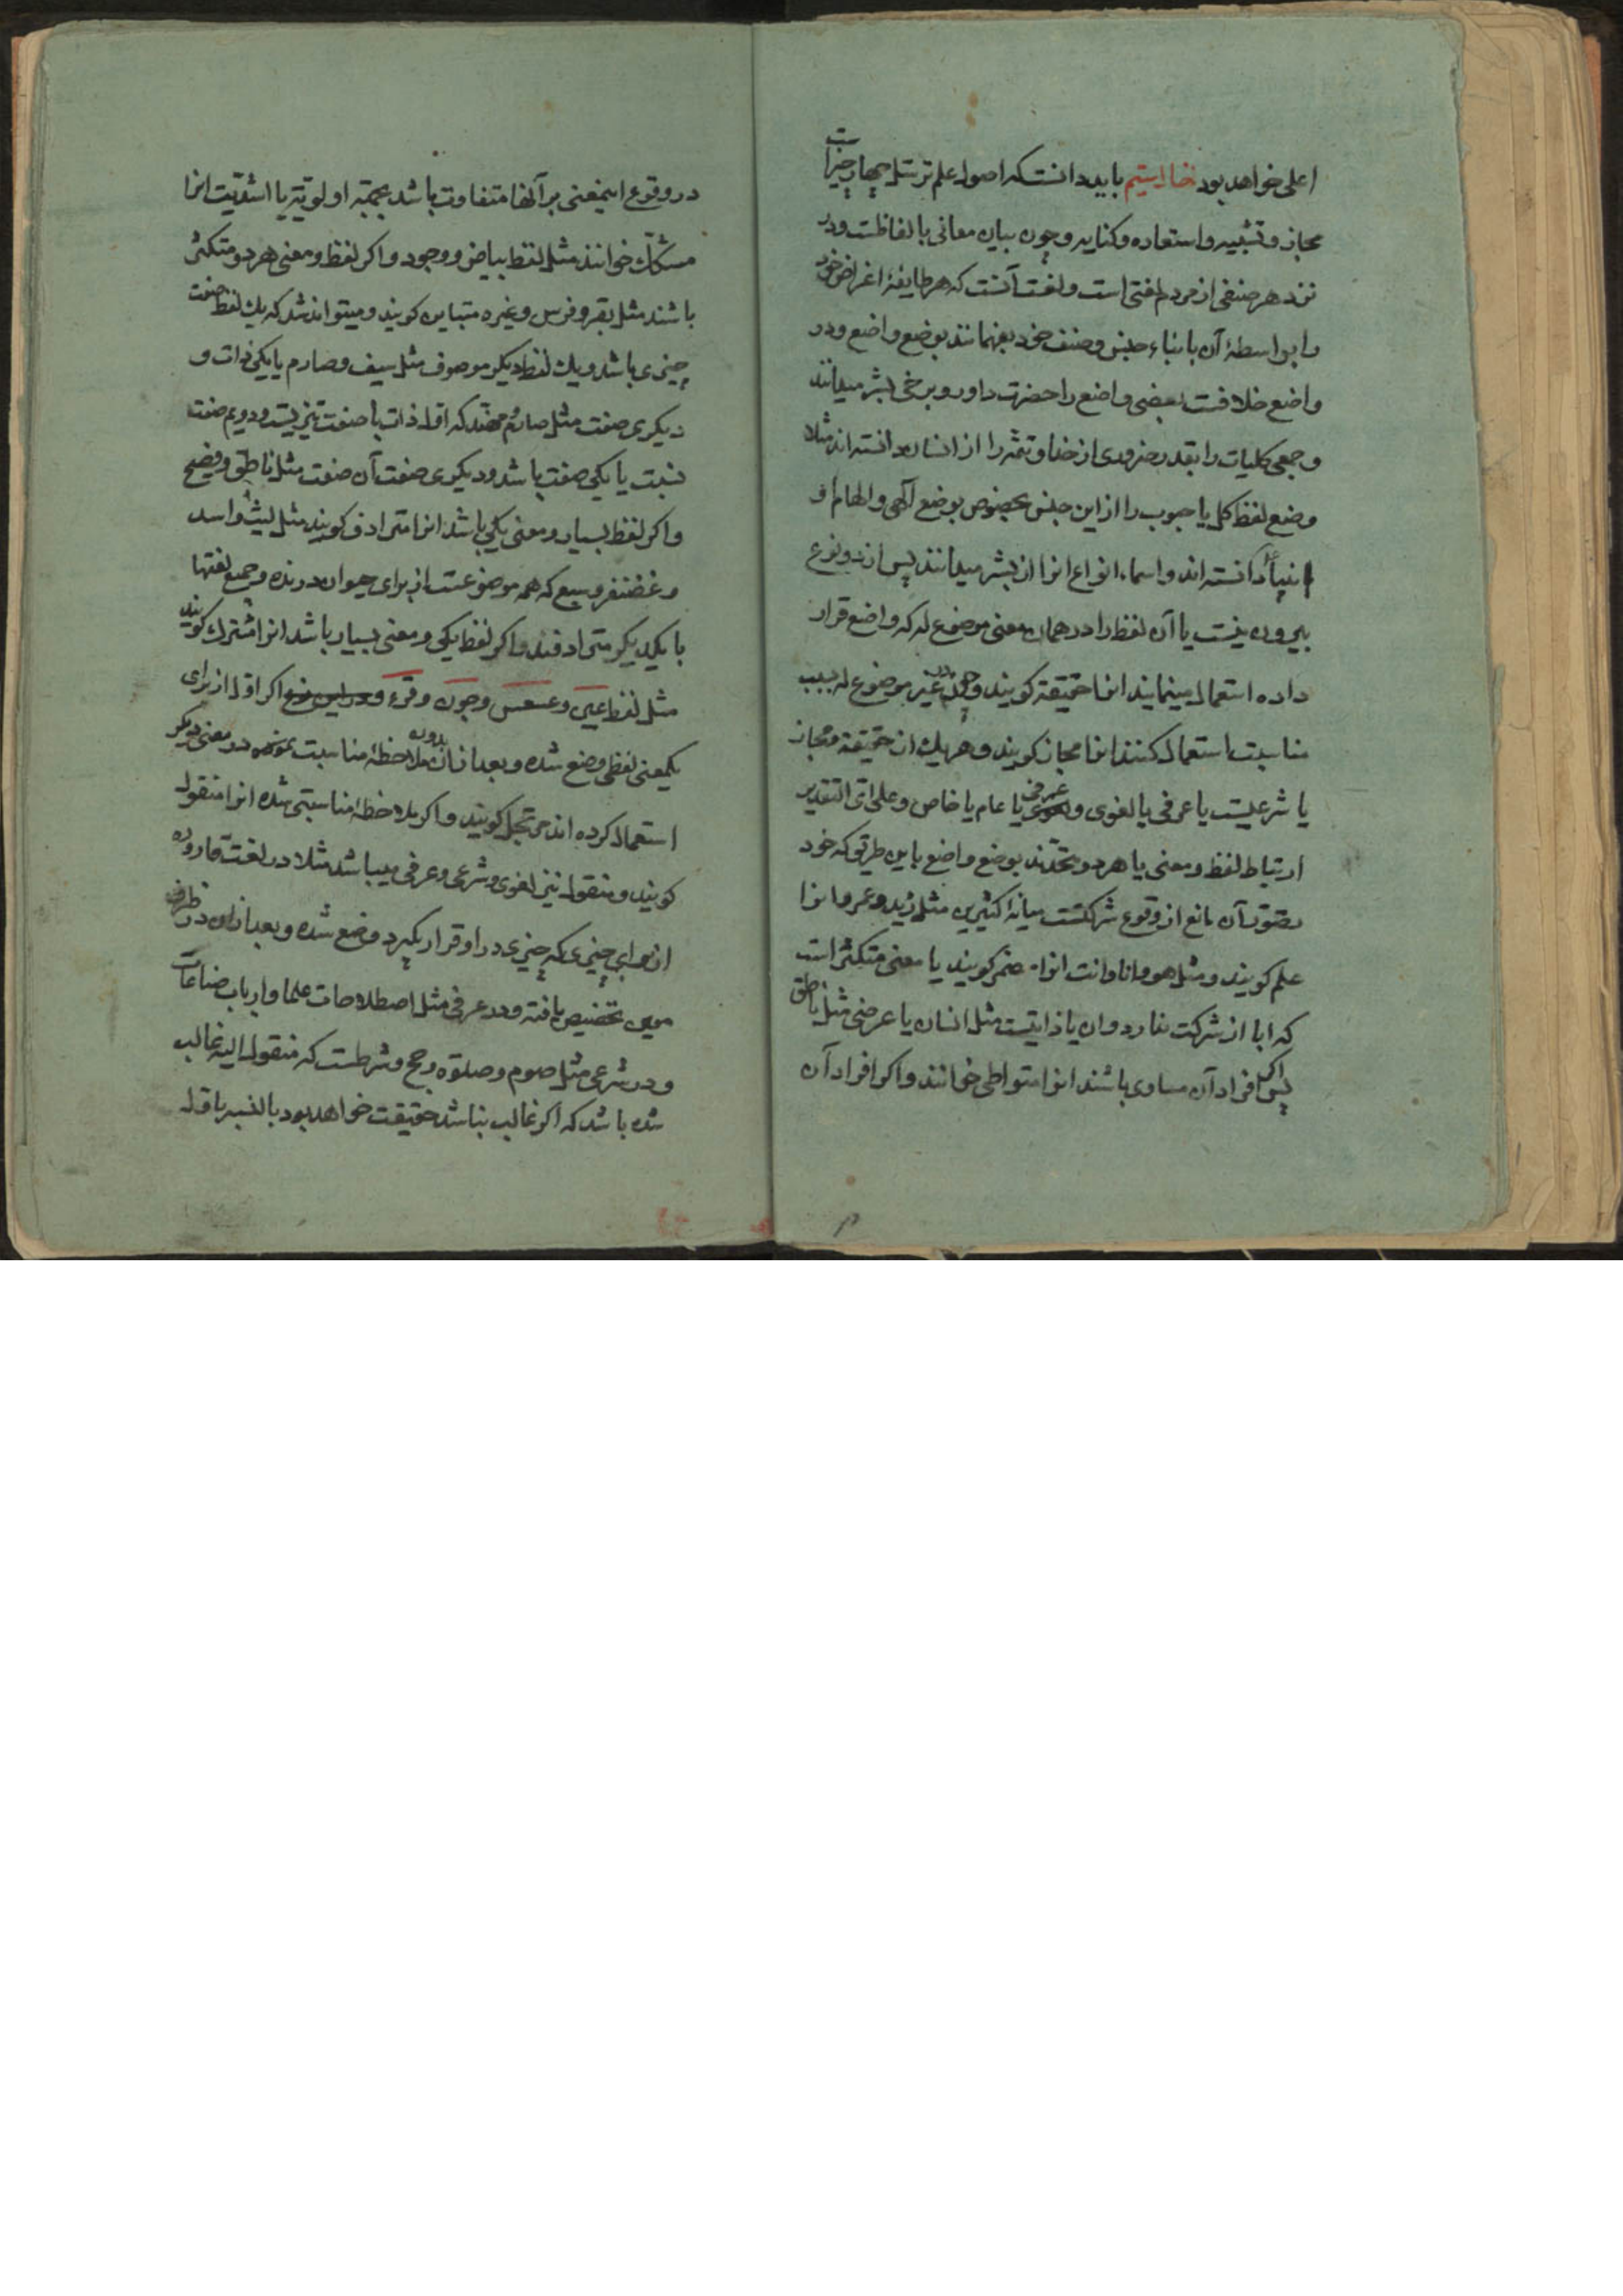 اعلی خواهد بود باید دانست که اصول علم ترسّل چهار چیز است
مجاز و تشبیه و استعاره و کنایه و چون بیان معانی بالفاظست و در
نزد هر صنفی از مردم لغتی است و لغت آنست که هر طایفهٔ اغراض خود
را بواسطهٔ آن بابناء جنس و صنف خود بفهمانند بوضع واضع و در
واضع خلافست بعضی واضع را حضرت داور و برخی بشر میدانند
و جمعی کلیات را بقدر ضروری از خدا و تتمّه را از انسان دانسته اند مثلا
وضع لفظ کل یا حبوب را از این جنس مخصوص بوضع آلهی و الهام او
انبیا دانسته اند و اسماء انواع انرا از بشر میدانند پس از دو نوع
بیرون نیست یا آن لفظ را در همان معنی موضوع له که واضع قرار
داده استعمال مینمایند انرا حقیقة کویند و چون در غیر موضوع له بسبب
مناسبت استعمال کنند انرا مجاز کویند و هر یك از حقیقة و مجاز
یا شرعیست یا عرفی یا لغوی و عرفی یا عام یا خاص و علی ایّ التقدیر
ارتباط لفظ و معنی یا هر دو متّحدند بوضع واضع باین طریق که خود
تصوّر آن مانع از وقوع شرکتست میانهٔ کثیرین مثل زید و عمرو انرا
علم کویند و مثل هو و انا و انت انرا مضمر کویند یا معنی متکثّر است
که ابا از شرکت ندارد و ان یا ذاتیست مثل انسان یا عرضی مثل ناطق
پس اکر افراد آن مساوی باشند انرا متواطی خوانند و اکر افراد آن
در وقوع اینمعنی بر آنها متفاوت باشد بجهة اولویّة یا اشدّیت انرا
مشکّك خوانند مثل لفظ بیاض و وجود و اکر لفظ و معنی هر دو متکثّر
باشند مثل بقر و فرس و غیره متباین کویند و میتواند شد که یك لفظ صفت
چیزی باشد و یك لفظ دیکر موصوف مثل سیف و صارم یا یکی ذات و
دیکری صفت مثل صارم و مهنّد که اوّل ذات با صفت تیزیست و دویم صفت
نسبت یا یکی صفت باشد و دیکری صفت آن صفت مثل ناطق و فصیح
و اکر لفظ بسیار و معنی یکی باشد انرا مترادف کویند مثل لیث و اسد
و غضنفر و سبع که همه موضوعست از برای حیوان درنده و جمیع لغتها
با یکدیکر مترادفند و اکر لفظ یکی و معنی بسیار باشد انرا مشترك کویند
مثل لفظ عین و عسعس و جون و قرء و اکر اوّل از برای
یکمعنی لفظی وضع شده و بعد از آن بدون ملاحظهٔ مناسبت در معنی دیکر
استعمال کرده اند مرتجل کویند و اکر بملاحظهٔ مناسبتی شده انرا منقول
کویند و منقول نیز لغوی و شرعی و عرفی میباشد مثلا در لغت قاروره
از برای چیزی که چیزی در او قرار بکیرد وضع شده و بعد از ان در ظرف
معین تخصیص یافته و در عرفی مثل اصطلاحات علما و ارباب صناعات
و در شرعی مثل صوم و صلوة و حج و شرطست که منقول الیه غالب
شده باشد که اکر غالب نباشد حقیقت خواهد بود بالنسبه باوّل